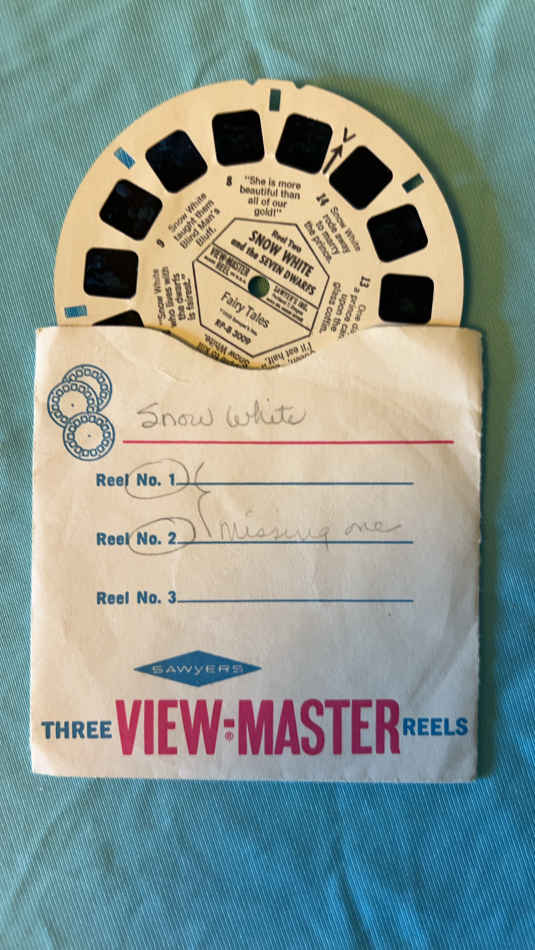 V
8
"She is more
beautiful than
all of our
gold!"
14
Snow White
rode away
to marry
the prince.
9
Snow White
taught them
Blind Man's
Bluff.
"Snow White
who lives with
the dwarfs
is fairest."
13
One da
a prince ca
upon the
glass coffin.
Reel Two
SNOW WHITE
and the SEVEN DWARFS
VIEW-MASTER
REEL
SAWYER'S INC.
Fairy Tales
KP-B 3009
I'll eat half."
Snow White
Snow White
Reel No. 1
Reel No. 2
missing one
Reel No. 3
SAWYERS
THREE VIEW-MASTER® REELS